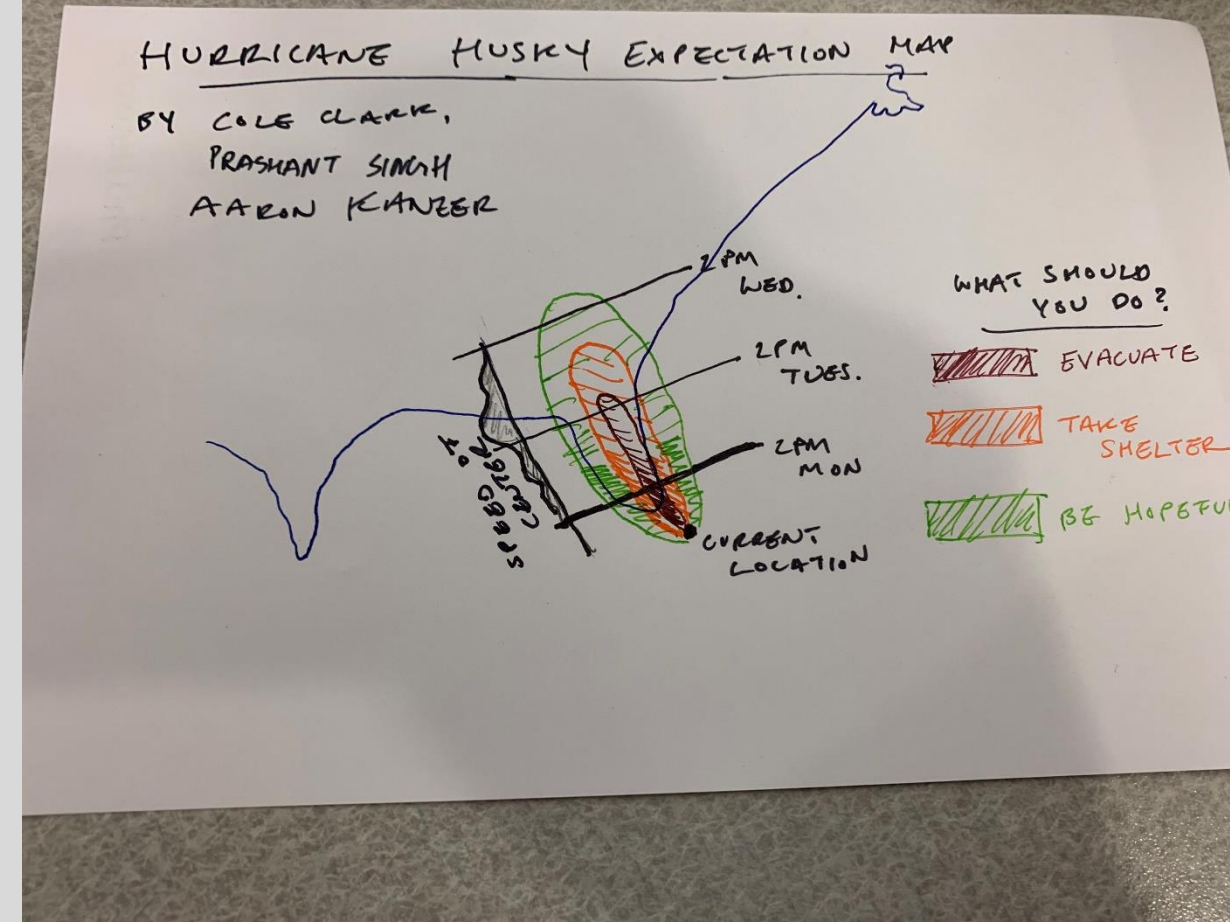 HURRICANE HUSKY EXPECTATION MAP
BY COLE CLARK,
PRASHANT SINGH
AARON KANZER
2 PM
WED.
2 PM
TUES.
2 PM
MON
CURRENT
LOCATION
SPEED OF
CENTER
WHAT SHOULD
YOU DO?
EVACUATE
TAKE
SHELTER
BE HOPEFUL